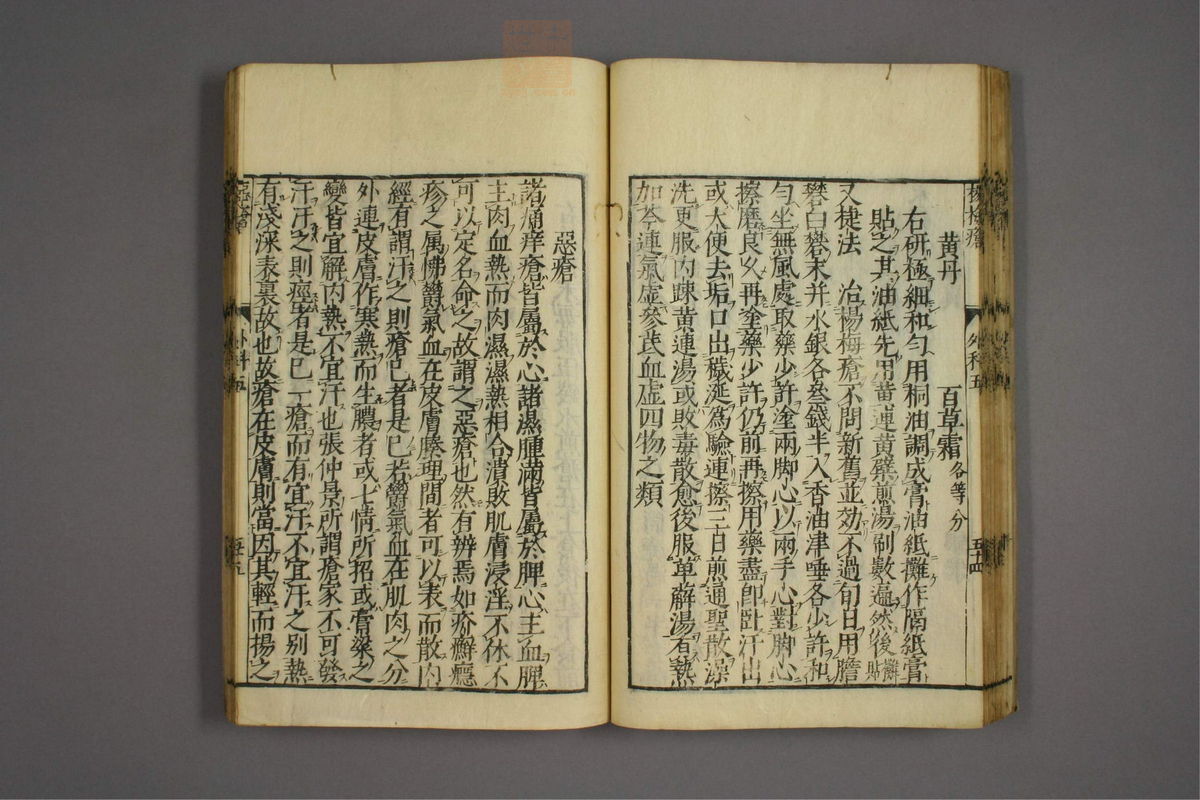 黄丹　百草霜各等分
右研極細和勻用桐油調成膏油紙攤作隔紙膏
貼之其油紙先用黄連黄檗煎湯刷數遍然後攤貼
又捷法　治楊梅瘡不問新舊並効不過旬日用膽
礬白礬末并水銀各叁錢半入香油津唾各少許和
勻坐無風處取藥少許塗兩脚心以兩手心對脚心
擦磨良久再塗藥少許仍前再擦用藥盡卽臥汗出
或大便去垢口出穢涎為驗連擦三日煎通聖散澡
洗更服内踈黄連湯或敗毒散愈後服萆薢湯有熱
加芩連氣虚參芪血虚四物之類
楊梅瘡　外科五　五十四
惡瘡
諸痛痒瘡皆屬於心諸濕腫滿皆屬於脾心主血脾
主肉血熱而肉濕濕熱相合潰敗肌膚浸淫不休不
可以定名命之故謂之惡瘡也然有辨焉如疥癬癮
疹之属怫欝氣血在皮膚腠理間者可以表而散内
經有謂汗之則瘡已者是已若欝氣血在肌肉之分
外連皮膚作寒熱而生膿者或七情所招或膏粱之
變皆宜解内熱不宜汗也張仲景所謂瘡家不可發
汗汗之則痙者是已一瘡而有宜汗不宜汗之别熱
有淺深表裏故也故瘡在皮膚則當因其輕而揚之
惡瘡　外科五　五十五